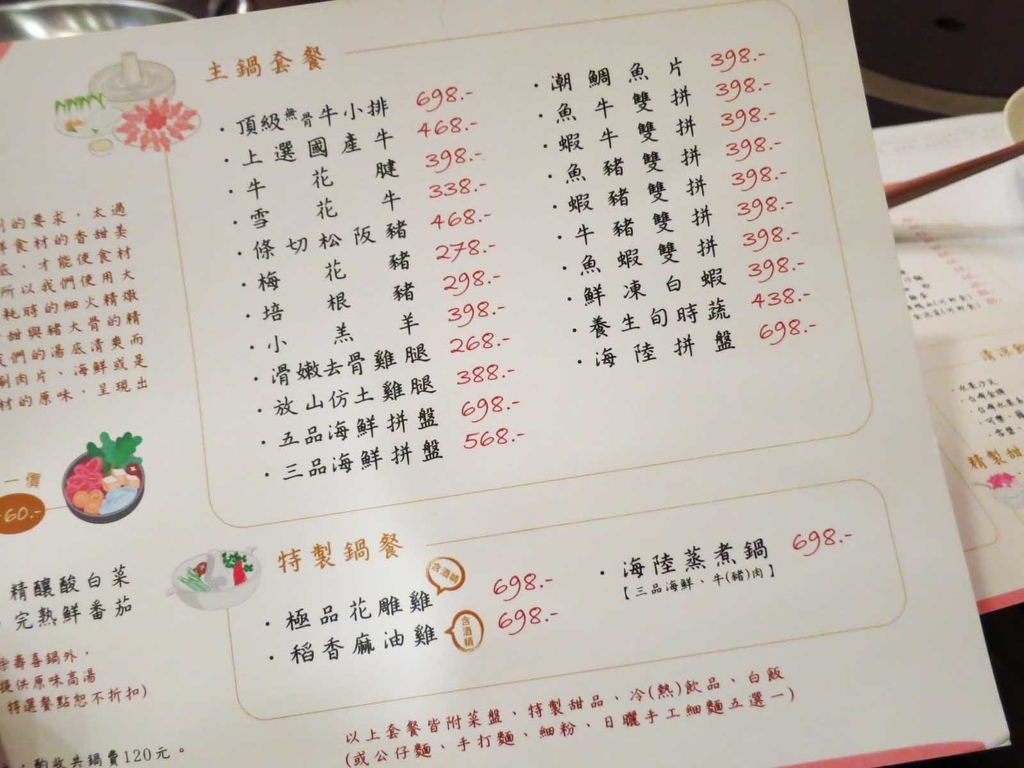 主鍋套餐
・頂級無骨牛小排 698.-
・上選國產牛 468.-
・牛花腱 398.-
・雪花牛 338.-
・條切松阪豬 468.-
・梅花豬 278.-
・培根豬 298.-
・小羔羊 398.-
・滑嫩去骨雞腿 268.-
・放山仿土雞腿 388.-
・五品海鮮拼盤 698.-
・三品海鮮拼盤 568.-
・潮鯛魚片 398.-
・魚牛雙拼 398.-
・蝦牛雙拼 398.-
・魚豬雙拼 398.-
・蝦豬雙拼 398.-
・牛豬雙拼 398.-
・魚蝦雙拼 398.-
・鮮凍白蝦 398.-
・養生旬時蔬 438.-
・海陸拼盤 698.-
特製鍋餐
・極品花雕雞 含酒精 698.-
・稻香麻油雞 含酒精 698.-
・海陸蒸煮鍋 698.-
【三品海鮮、牛(豬)肉】
以上套餐皆附菜盤、特製甜品、冷(熱)飲品、白飯
(或公仔麵、手打麵、細粉、日曬手工細麵五選一)
的要求，太過
食材的香甜美
底，才能使食材
所以我們使用大
耗時的細火精燉
甜與豬大骨的精
我們的湯底清爽而
涮肉片、海鮮或是
材的原味，呈現出
一價
60.-
精釀酸白菜
完熟鮮番茄
壽喜鍋外，
提供原味高湯
特選餐點恕不折扣)
酌收共鍋費120元。
精製甜